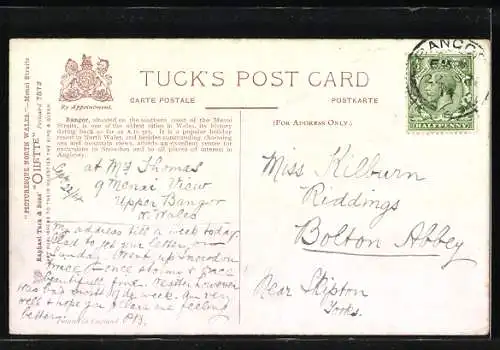 TUCK'S POST CARD
By Appointment.
CARTE POSTALE
POSTKARTE
(FOR ADDRESS ONLY.)
Bangor, situated on the southern coast of the Menai
Straits, is one of the oldest cities in Wales, its history
dating back so far as A.D. 525. It is a popular holiday
resort in North Wales, and besides commanding charming
sea and mountain views, affords an excellent centre for
excursions in Snowdonia and to all places of interest in
Anglesey.
"PICTURESQUE NORTH WALES."—Menai Straits.
Raphael Tuck & Sons' "OILETTE" Postcard 7572
BANGO
HALFPENNY
Sept 22/14
at Mrs Thomas
9 Menai View
Upper Bangor
N. Wales
My address till a week today.
Glad to get your letter, on
Sunday. Went up Snowdon
twice; once stormy & once
beautifully fine. Weather however
was bad most of the week. Am very
well & hope you & Clara are feeling
better.
Miss Kilburn
Riddings
Bolton Abbey
Near Skipton
Yorks.
Printed in England